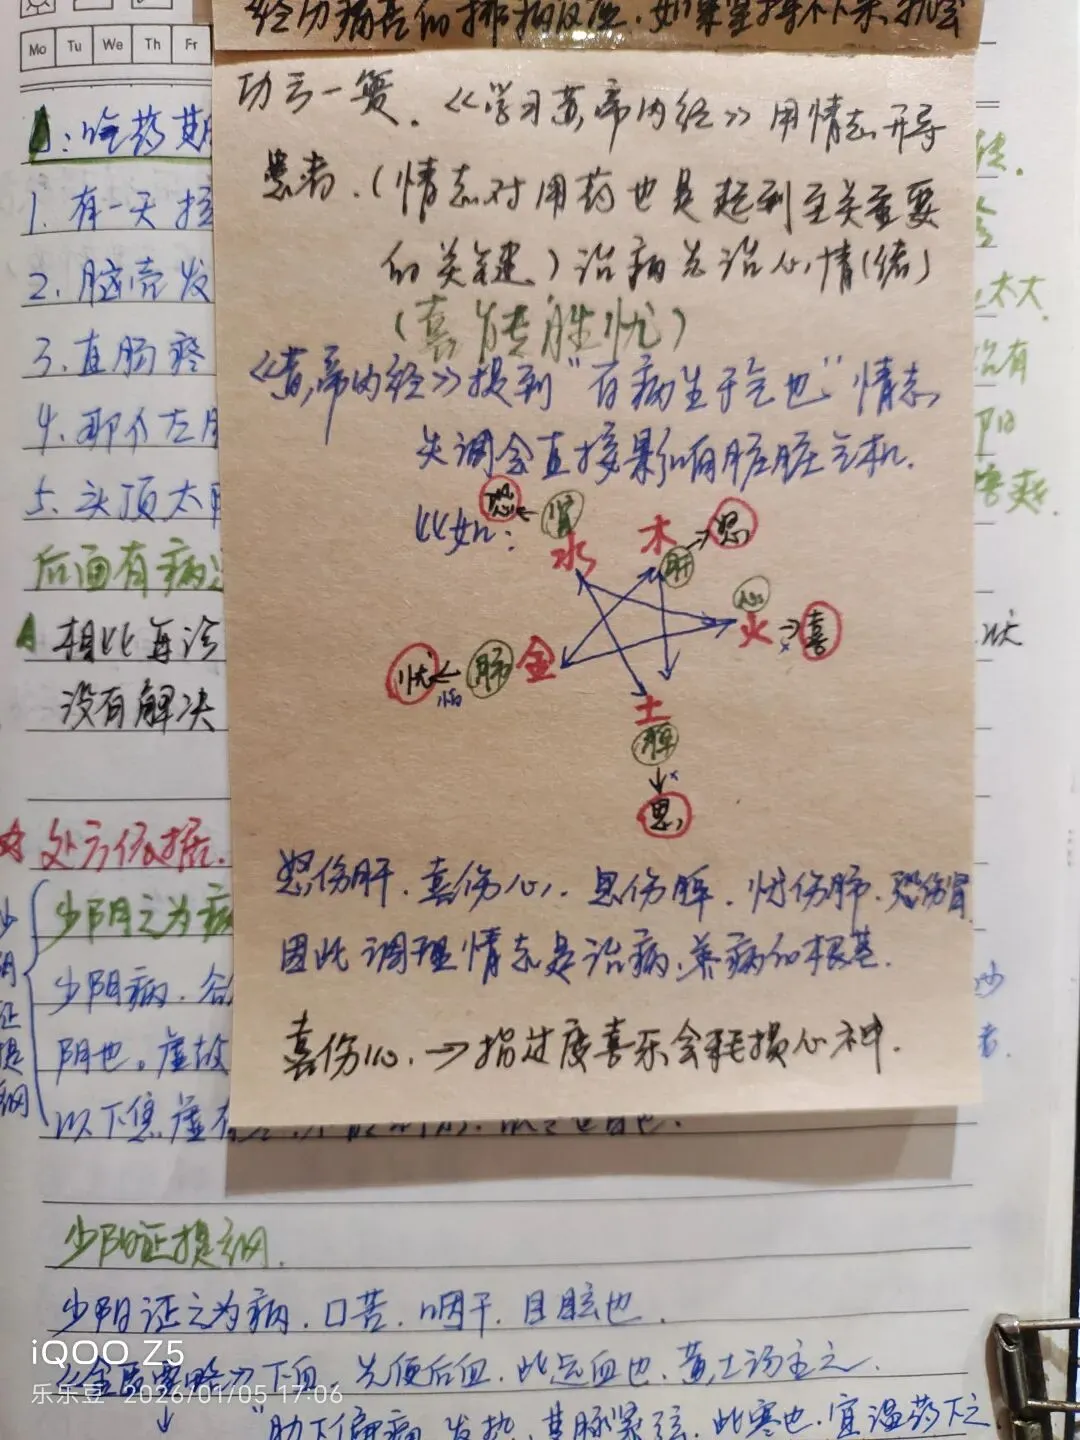 Mo Tu We Th Fr
经历病患的排病反应.如果坚持不下来,就会
功亏一篑.《学习黄帝内经》用情志开导
患者.(情志对用药也是起到至关重要
的关键)治病先治心情(绪)
(喜能胜忧)
《黄帝内经》提到"百病生于气也"情志
失调会直接影响脏腑气机.
比如:
恐 ← 肾
水
木 → 怒
肝
心
火 → 喜
忧 ← 肺 金
土
脾
↓
思
怒伤肝.喜伤心.思伤脾.忧伤肺.恐伤肾
因此调理情志是治病、养病的根基.
喜伤心.→指过度喜乐会耗损心神.
:吃药期
1.有一天拉
2.脑壳发
3.直肠疼
4.那个左
5.头顶太阳
后面有病
相比再诊
没有解决
处方依据.
少阴之为病
少阴病.
阴也。虚故
以下焦虚有
少阴证提纲
少阳证提纲.
少阳证之为病.口苦.咽干.目眩也.
《金匮要略》下血.先便后血.此远血也.黄土汤主之.
"胁下偏痛.发热.其脉紧弦.此寒也.宜温药下之
iQOO Z5
乐乐豆 2026/01/05 17:06